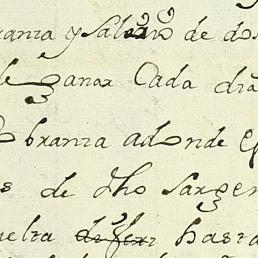 ranza y salario de dos
de ganar Cada dia
branza adonde
s de dho sargen
uelta hasta